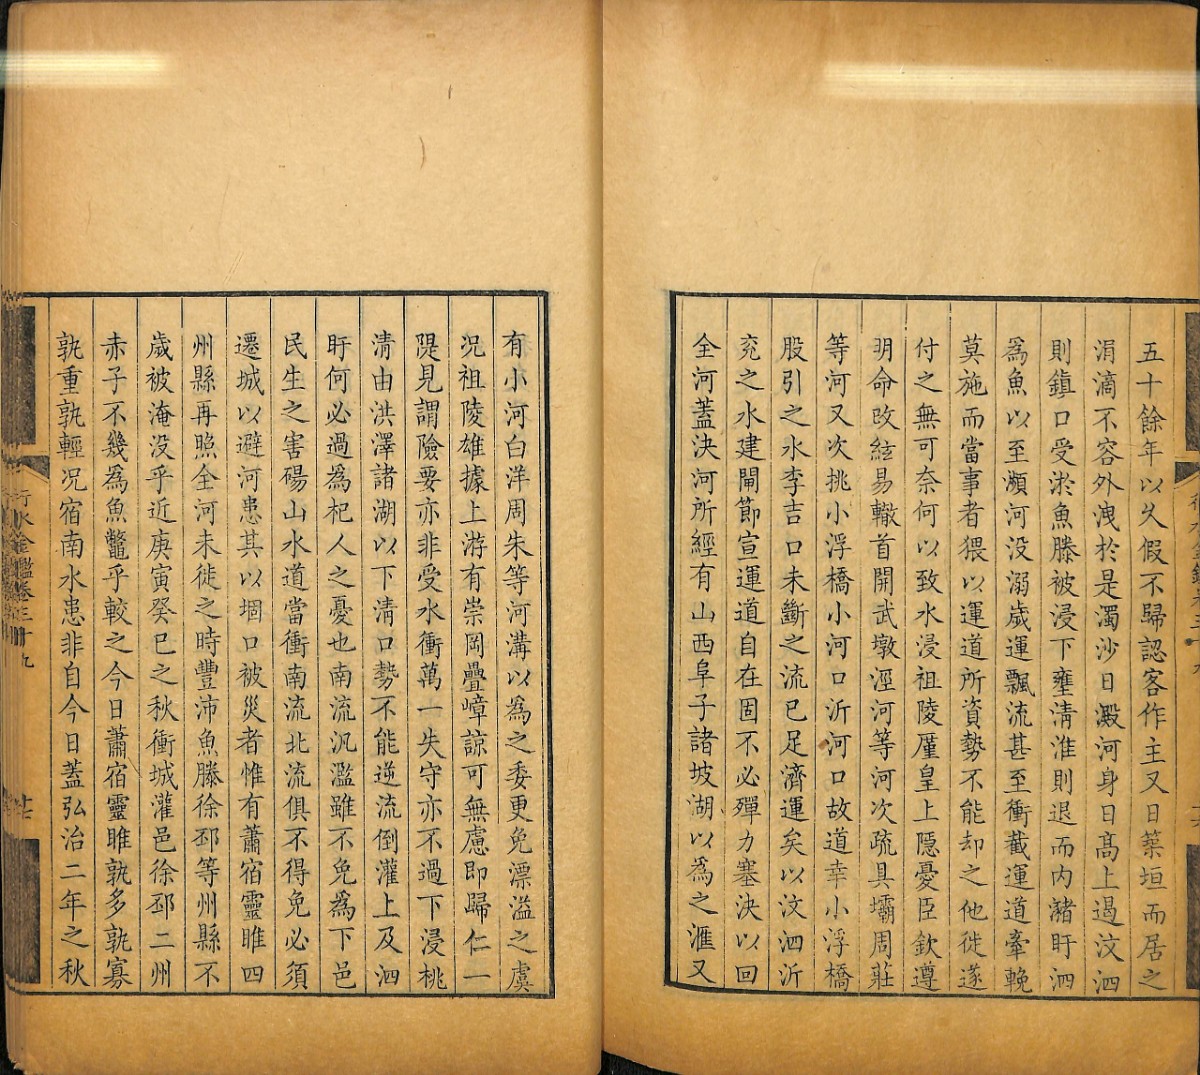 五十餘年以久假不歸認客作主又日築垣而居之
涓滴不容外洩於是濁沙日澱河身日高上遏汶泗
則鎮口受淤魚滕被浸下壅淸淮則退而内瀦盱泗
爲魚以至瀕河没溺歲運飄流甚至衝截運道牽輓
莫施而當事者猥以運道所資勢不能却之他徙遂
付之無可奈何以致水浸祖陵厪皇上隱憂臣欽遵
明命改絃易轍首開武墩涇河等河次疏具壩周莊
等河又次挑小浮橋小河口沂河口故道幸小浮橋
股引之水李吉口未斷之流已足濟運矣以汶泗沂
兖之水建閘節宣運道自在固不必殫力塞決以回
全河蓋決河所經有山西阜子諸坡湖以爲之滙又
有小河白洋周朱等河溝以爲之委更免漂溢之虞
况祖陵雄據上游有崇岡疊嶂諒可無慮即歸仁一
隄見謂險要亦非受水衝萬一失守亦不過下浸桃
清由洪澤諸湖以下清口勢不能逆流倒灌上及泗
盱何必過爲杞人之憂也南流汎濫雖不免爲下邑
民生之害碭山水道當衝南流北流俱不得免必須
遷城以避河患其以堌口被災者惟有蕭宿靈睢四
州縣再照全河未徙之時豐沛魚滕徐邳等州縣不
歲被淹没乎近庚寅癸巳之秋衝城灌邑徐邳二州
赤子不幾爲魚鼈乎較之今日蕭宿靈睢孰多孰寡
孰重孰輕况宿南水患非自今日蓋弘治二年之秋
行水金鑑卷三十九